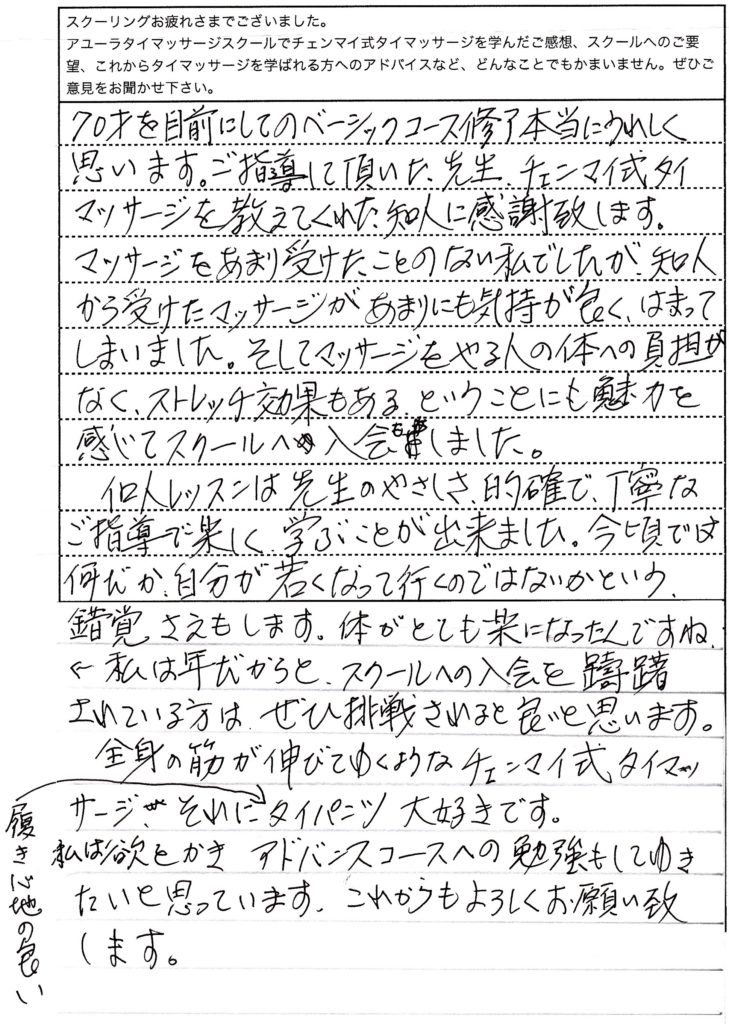 スクーリングお疲れさまでございました。
アユーラタイマッサージスクールでチェンマイ式タイマッサージを学んだご感想、スクールへのご要
望、これからタイマッサージを学ばれる方へのアドバイスなど、どんなことでもかまいません。ぜひご
意見をお聞かせ下さい。
70才を目前にしてのベーシックコース修了本当にうれしく
思います。ご指導して頂いた先生、チェンマイ式タイ
マッサージを教えてくれた知人に感謝致します。
マッサージをあまり受けたことのない私でしたが、知人
から受けたマッサージがあまりにも気持が良く、はまって
しまいました。そしてマッサージをやる人の体への負担が
なく、ストレッチ効果もあるということにも魅力を
感じてスクールへ入会をしました。
個人レッスンは先生のやさしさ、的確で、丁寧な
ご指導で楽しく、学ぶことが出来ました。今頃では
何だか、自分が若くなって行くのではないかという、
錯覚さえもします。体がとても楽になったんですね、
← 私は年だからと、スクールへの入会を躊躇
されている方は、ぜひ挑戦されると良いと思います。
全身の筋が伸びてゆくようなチェンマイ式タイマッ
サージ、それにタイパンツ大好きです。
履き心地の良い
私は欲をかきアドバンスコースへの勉強もしてゆき
たいと思っています、これからもよろしくお願い致
します。